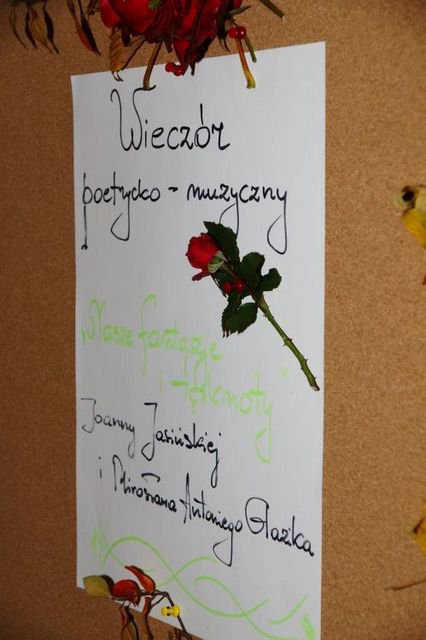 Wieczór
poetycko - muzyczny
„Nasze fantazje
i tęsknoty"
Joanny Jasińskiej
i Mirosława Antoniego Glazika